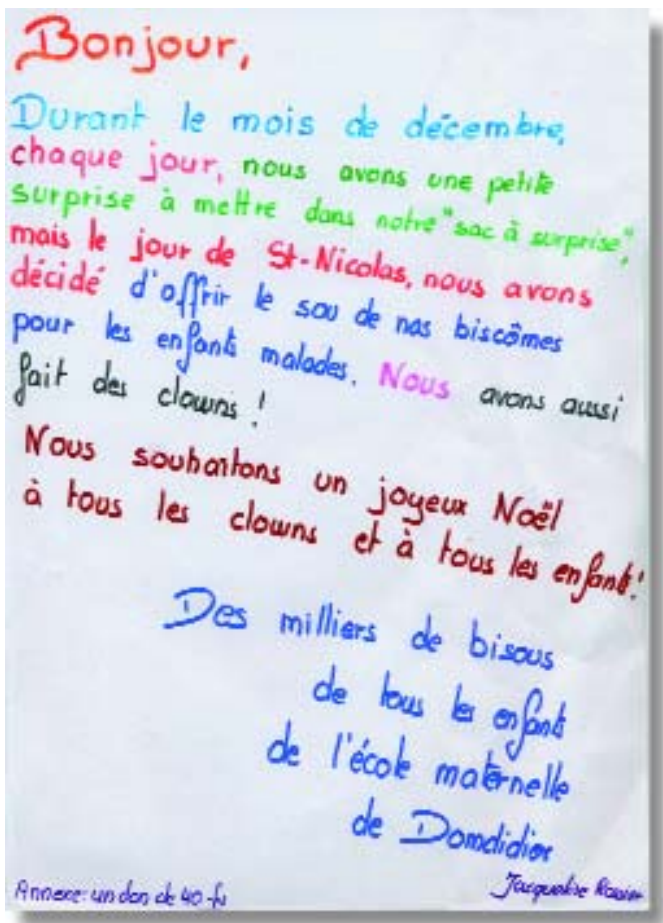 Bonjour,
Durant le mois de décembre,
chaque jour, nous avons une petite
surprise à mettre dans notre "sac à surprise",
mais le jour de St-Nicolas, nous avons
décidé d'offrir le sou de nos biscômes
pour les enfants malades. Nous avons aussi
fait des clowns !
Nous souhaitons un joyeux Noël
à tous les clowns et à tous les enfants !
Des milliers de bisous
de tous les enfants
de l'école maternelle
de Domdidier
Jacqueline
Annexe : un don de 40.-fs